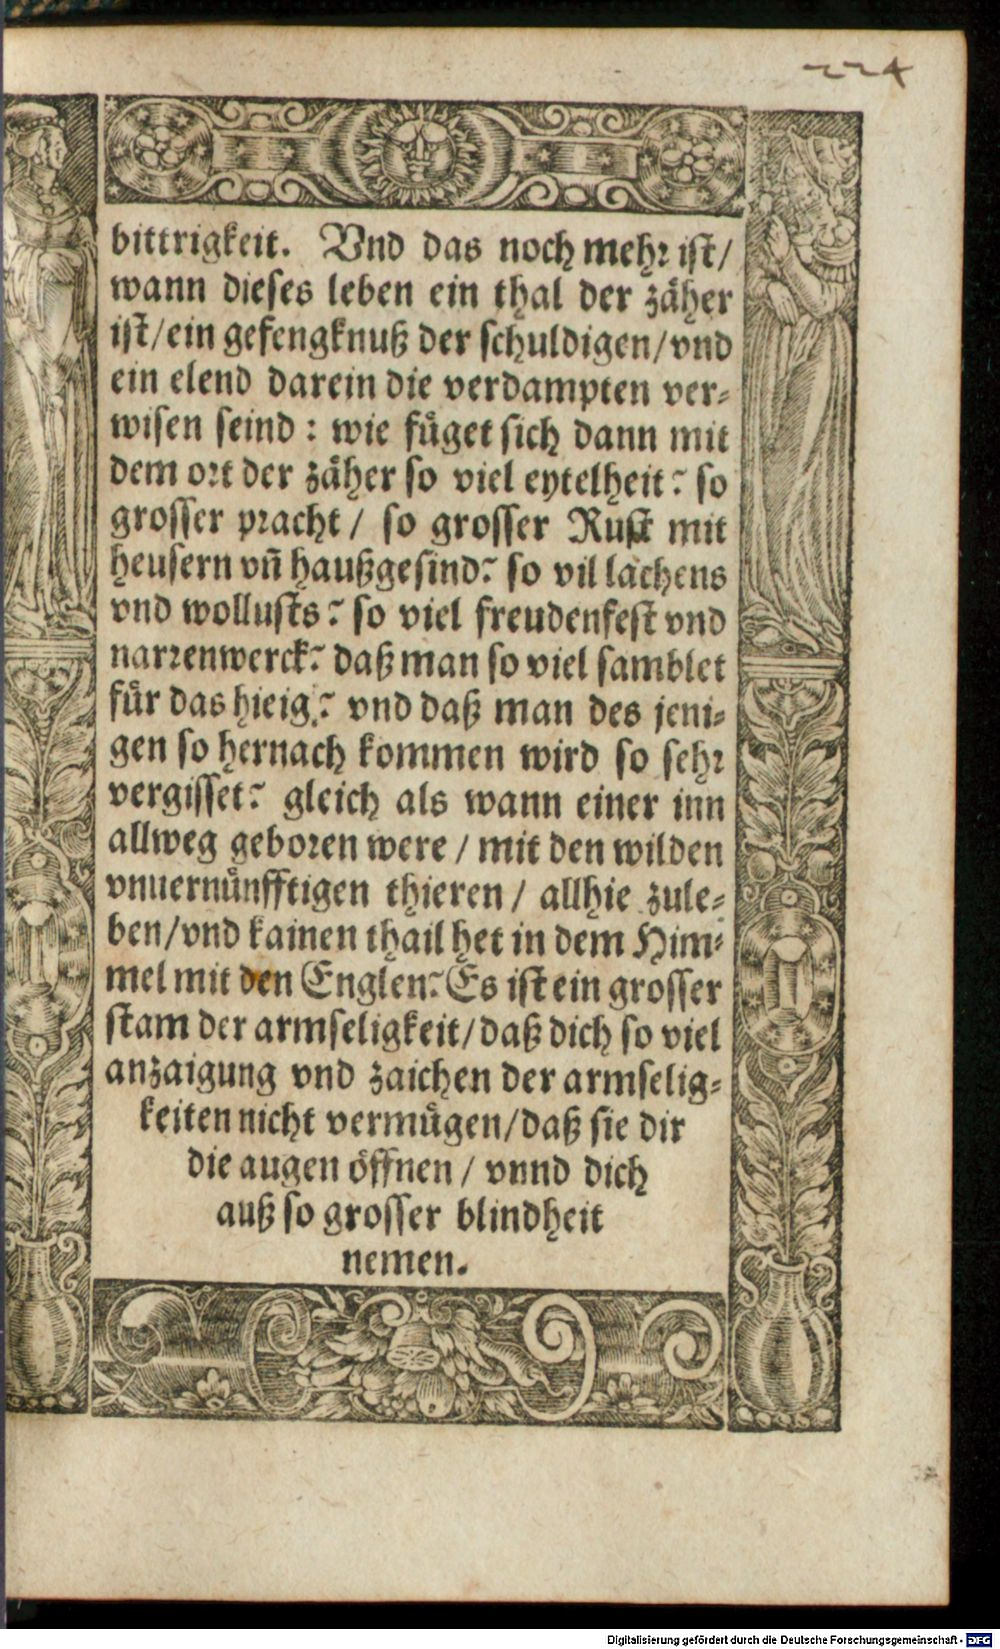 224
bittrigkeit. Vnd das noch mehr iſt/
wann dieſes leben ein thal der zåher
iſt/ein gefengknuß der ſchuldigen/vnd
ein elend darein die verdampten ver-
wiſen ſeind: wie fůget ſich dann mit
dem ort der zåher ſo viel eytelheit? ſo
groſſer pracht/ ſo groſſer Ruſt mit
heuſern vñ haußgeſind? ſo vil lachens
vnd wolluſts? ſo viel freudenfeſt vnd
narrenwerck? daß man ſo viel ſamblet
fůr das hieig? vnd daß man des jeni-
gen ſo hernach kommen wird ſo ſehr
vergiſſet? gleich als wann einer inn
allweg geboren were / mit den wilden
vnuernůnfftigen thieren / allhie zule-
ben/vnd kainen thail het in dem Him-
mel mit den Englen? Es iſt ein groſſer
ſtam der armſeligkeit/daß dich ſo viel
anzaigung vnd zaichen der armſelig-
keiten nicht vermůgen/daß ſie dir
die augen öffnen / vnnd dich
auß ſo groſſer blindheit
nemen.
Digitalisierung gefördert durch die Deutsche Forschungsgemeinschaft - DFG